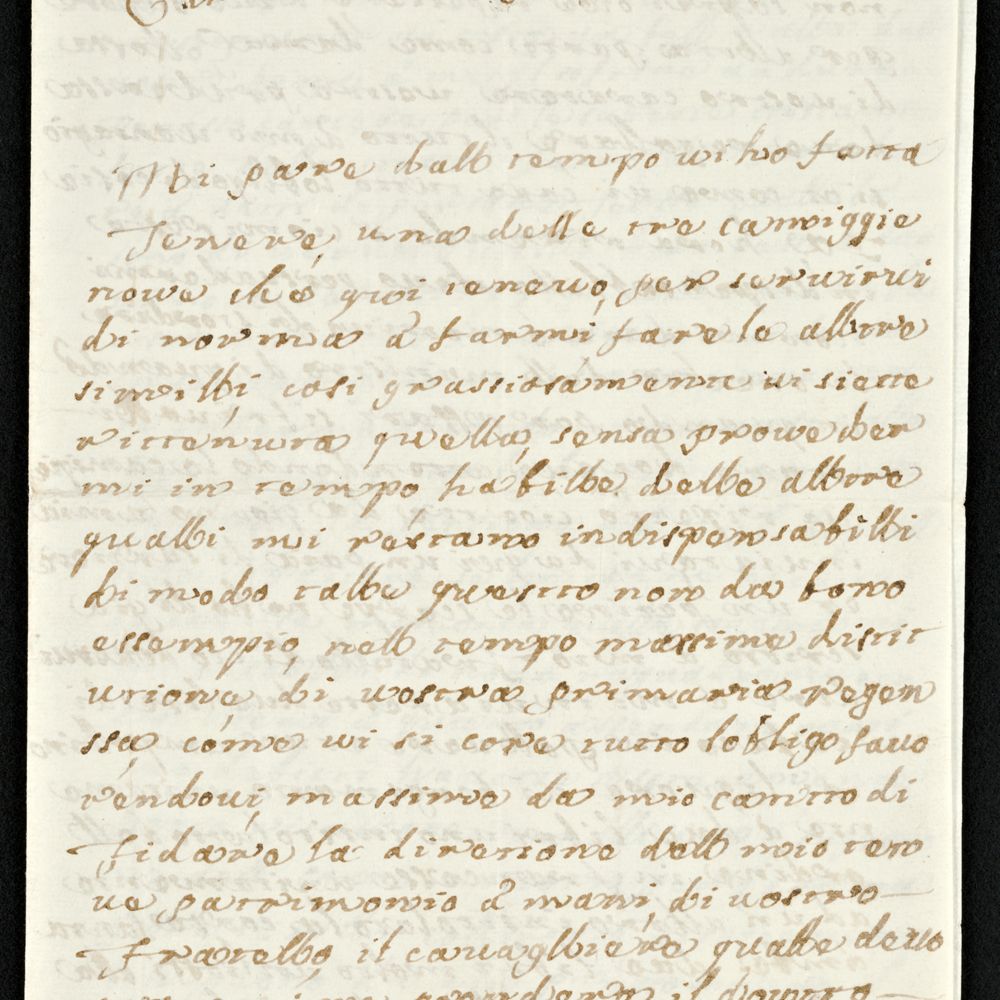 Mi pare dall tempo vi ho fatta
Tenere, una delle tre camiggie
nove ché qui tenevo, per servirvi
di norma à farmi fare le alttre
simili, cosi grassiosámente vi siette
rittenuta quella, sensa proveder
mi in tempo habille delle alttre
qualli mi réstano indispensabilli
di modo talle questto non da bono
essempio, nell tempo massime distit
utione, di vostra primaria regen
ssa, cóme vi si core tutto lobligo favo
réndovi, massime da mio cantto di
fidáre la diretione dell mio ten
ue patrimonio à mani, di vostro
fratello, il cavagliére qualle devo
il